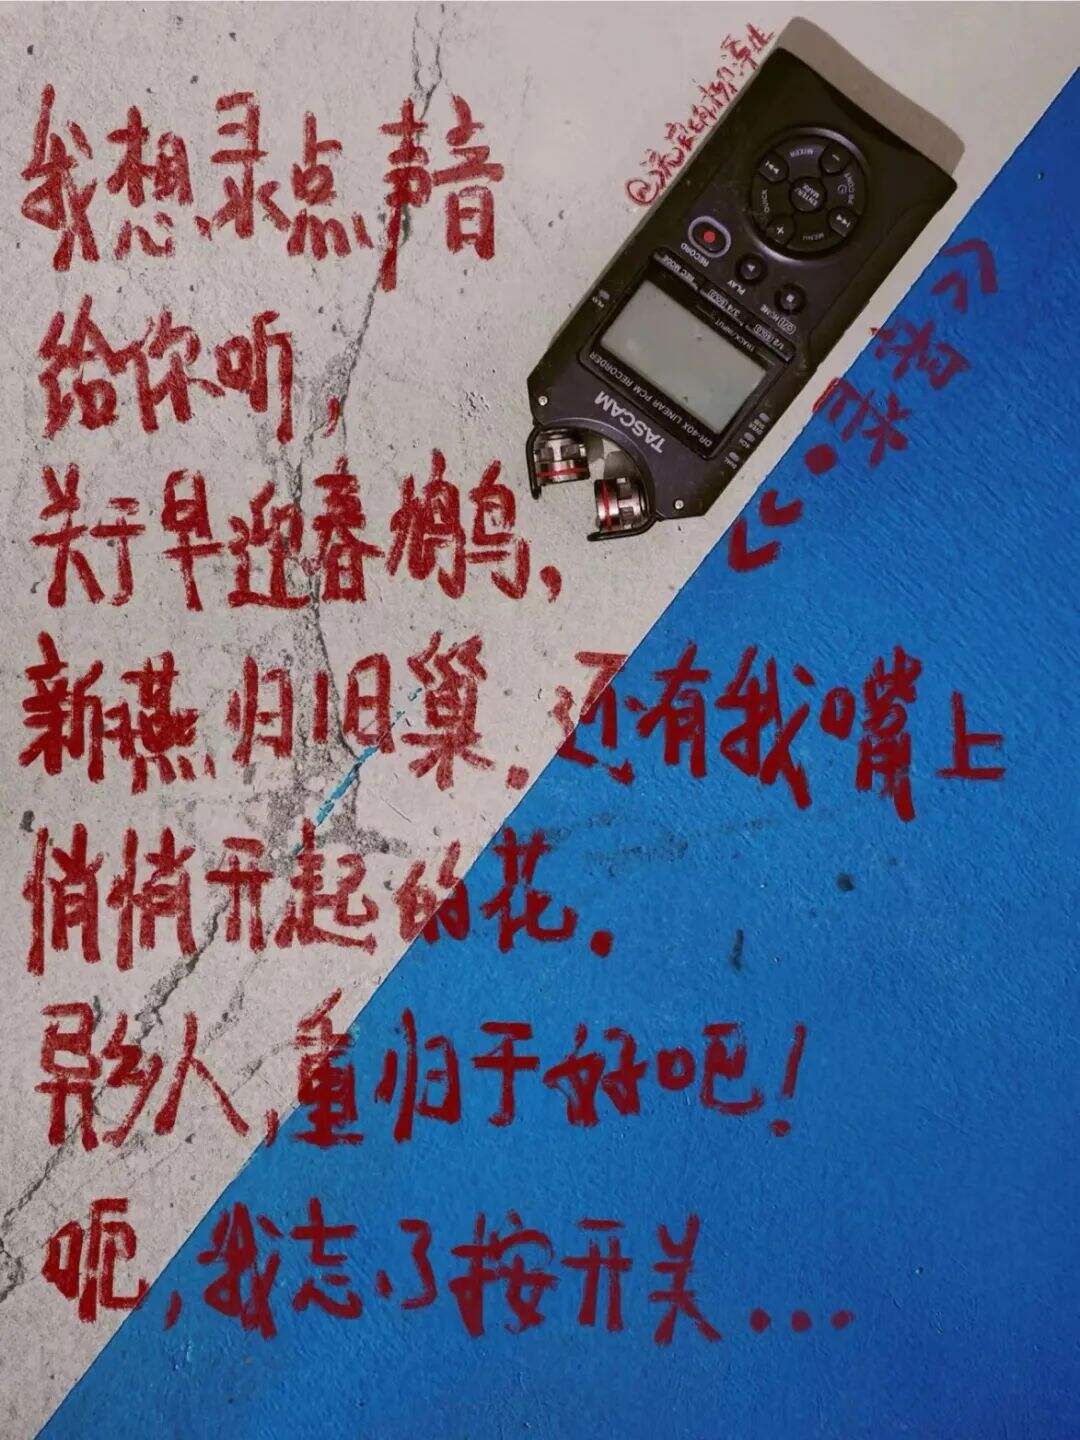 我想录点声音
给你听，
关于早迎春鹧鸟，
新燕归旧巢．还有我嘴上
悄悄开起的花．
异乡人，重归于好吧！
呃，我忘了按开关...
TASCAM
DR-40X LINEAR PCM RECORDER
TRACK/INPUT
1/2 (SOLO)
3/4 (SOLO)
REC MODE
RECORD
PLAY
HOME
MENU
MIXER
QUICK
ENTER/
MARK
PEAK